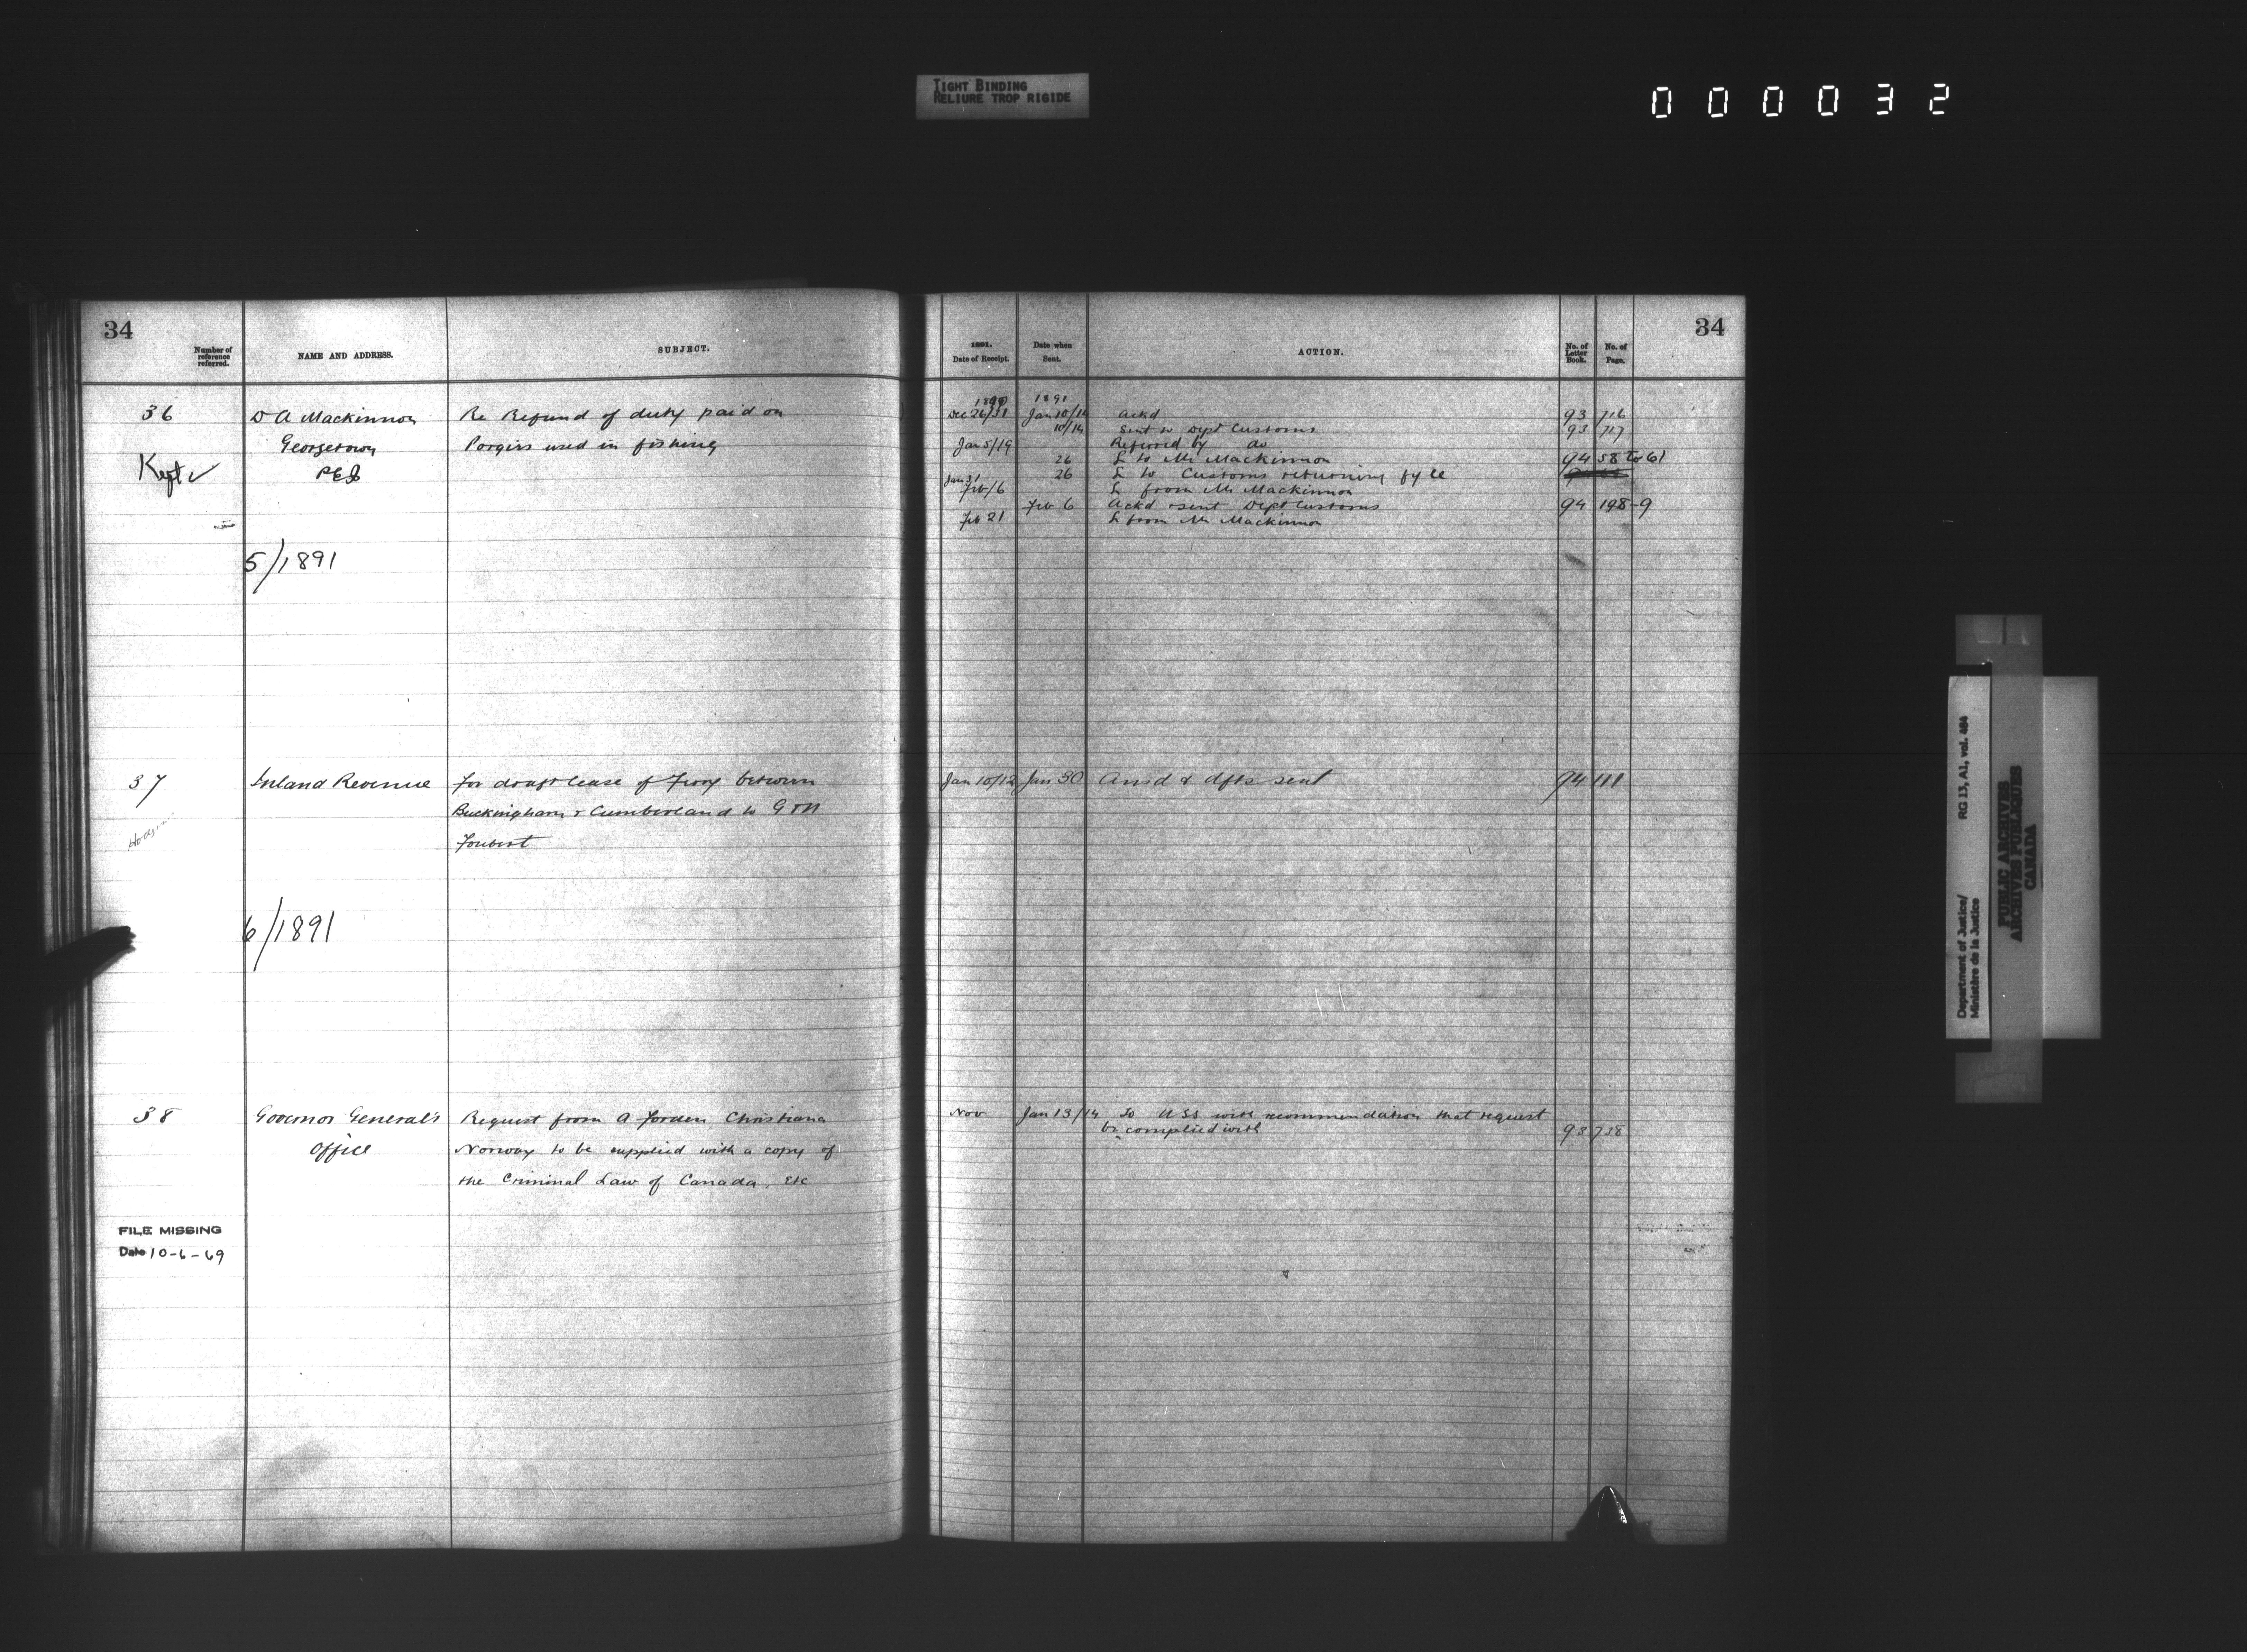 TIGHT BINDING
RELIURE TROP RIGIDE
000032
34
Number of reference referred.
NAME AND ADDRESS.
SUBJECT.
36
D A Mackinnon
Re Refund of duty paid on
Georgetown
Porgies used in fishing
Kept ✓
PEI
5/1891
37
Inland Revenue
For draft lease of Ferry between
Buckingham & Cumberland to G & N
Foubert
6/1891
38
Governor General's
Request from A Forden Christiana
Office
Norway to be supplied with a copy of
the Criminal Law of Canada, Etc
FILE MISSING
Date 10-6-69
34
1891.
Date of Receipt.
Date when Sent.
ACTION.
No. of Letter Book.
No. of Page.
1890 1891
Dec 26/31 Jan 10/14 Ackd 93 716
10/14 Sent to Dept Customs 93 717
Jan 5/19 Referred by do
26 L to Mr Mackinnon 94 58 to 61
26 L to Customs returning fyle
Jan 31
Feb/6 L from Mr Mackinnon
Feb 6 Ackd & sent Dept Customs 94 198-9
Feb 21 L from Mr Mackinnon
Jan 10/12 Jan 30 Ansd & dfts sent 94 111
Nov Jan 13/14 To USS with recommendation that request
be complied with 93 738
Department of Justice/
Ministère de la Justice
RG 13, A1, vol. 464
PUBLIC ARCHIVES
ARCHIVES PUBLIQUES
CANADA